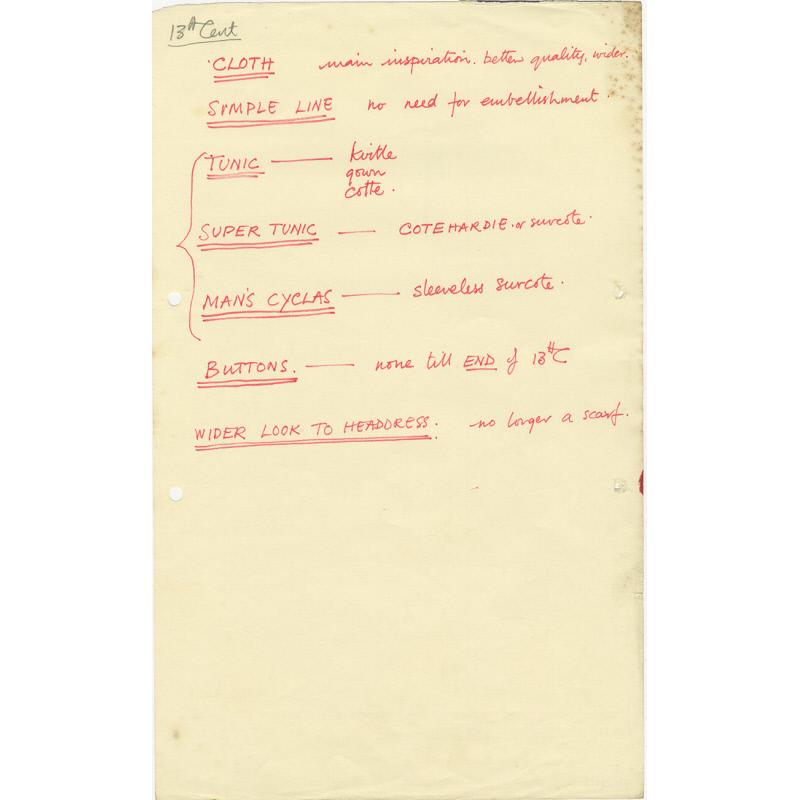 13th Cent
CLOTH main inspiration. better quality, wider.
SIMPLE LINE no need for embellishment.
TUNIC — kirtle
gown
cotte.
SUPER TUNIC — COTEHARDIE. or surcote.
MAN'S CYCLAS — sleeveless surcote.
BUTTONS. — none till END of 13th C
WIDER LOOK TO HEADDRESS. no longer a scarf.